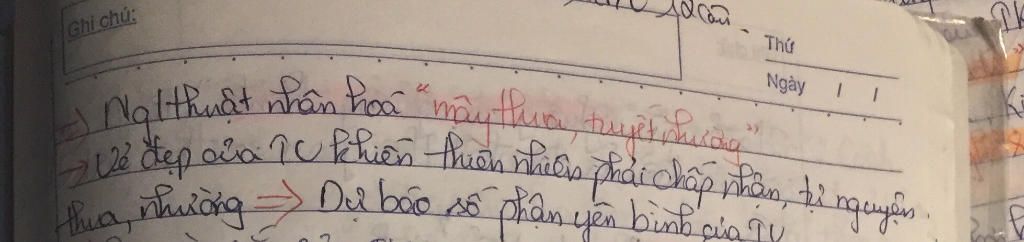 Ghi chú:
Thứ
Ngày / /
=> Ngthuật nhân hoá "mây thua, tuyết nhường"
-> Vẻ đẹp của TV khiến thiên nhiên phải chấp nhận, tự nguyện
thua, nhường => Dự báo số phận yên bình của TV